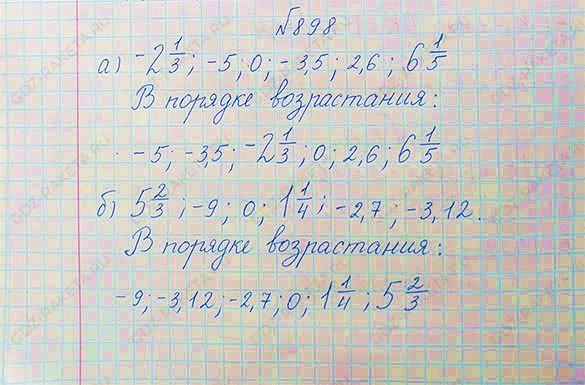 №898
а) -2 1/3; -5; 0; -3,5; 2,6; 6 1/5
В порядке возрастания:
-5; -3,5; -2 1/3; 0; 2,6; 6 1/5
б) 5 2/3; -9; 0; 1 1/4; -2,7; -3,12.
В порядке возрастания:
-9; -3,12; -2,7; 0; 1 1/4; 5 2/3
GDZ-RAKETA.RU